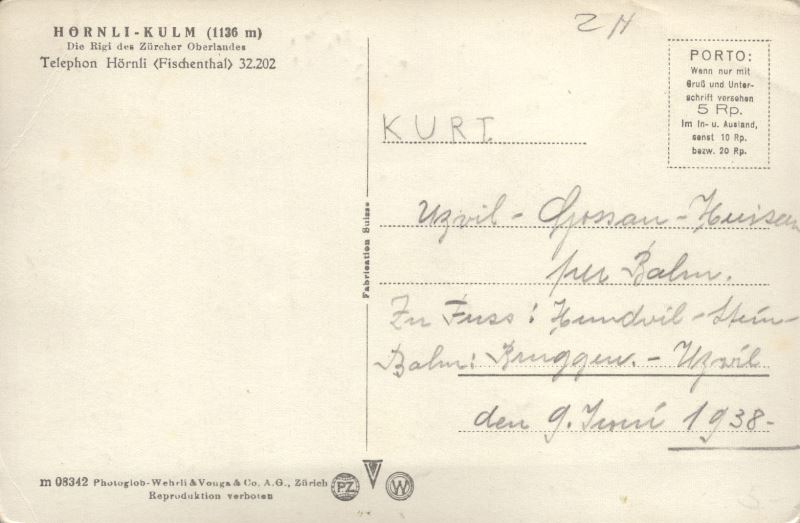 HÖRNLI-KULM (1136 m)
Die Rigi des Zürcher Oberlandes
Telephon Hörnli (Fischenthal) 32.202
ZH
PORTO:
Wenn nur mit
Gruß und Unter-
schrift versehen
5 Rp.
Im In- u. Ausland,
sonst 10 Rp.
bezw. 20 Rp.
KURT.
Uzvil - Gossau - Herisau
per Bahn.
Zu Fuss: Hundvil - Stein-
Bahn: Bruggen. - Uzvil
den 9. Juni 1938-
Fabrication Suisse
m 08342 Photoglob-Wehrli & Vouga & Co. A.G., Zürich
Reproduktion verboten
PZ
W